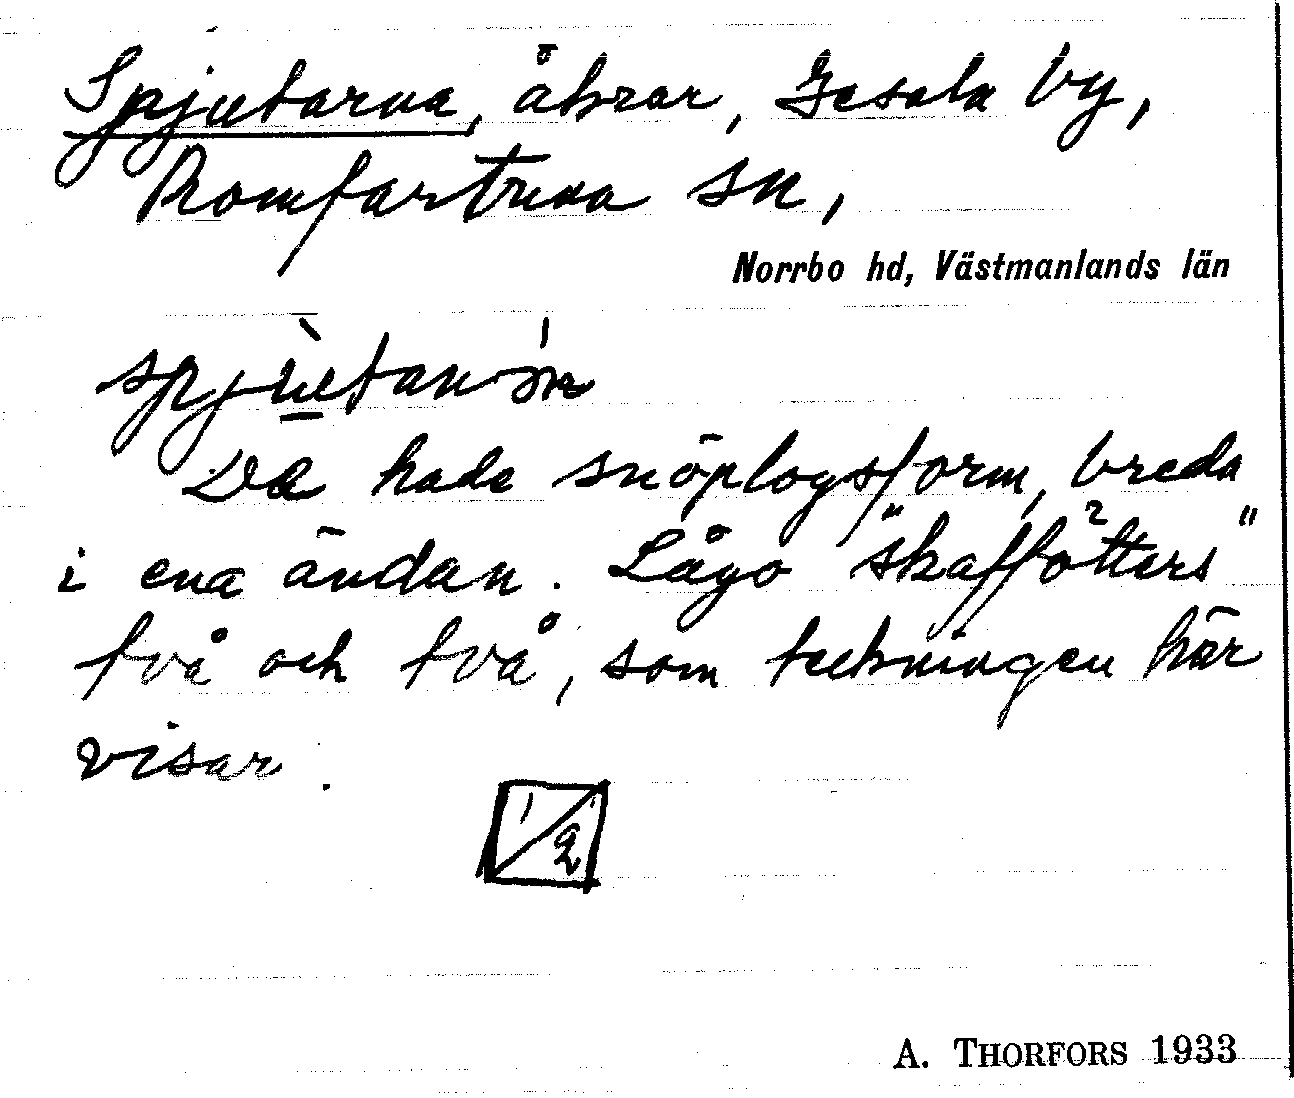 Spjutarna, åkrar, Jesala by,
Romfartuna sn,
Norrbo hd, Västmanlands län
De hade snöplogsform, breda
i ena ändan. Lågo "skaffötters"
två och två, som teckningen här
visar.
1/2
A. THORFORS 1933